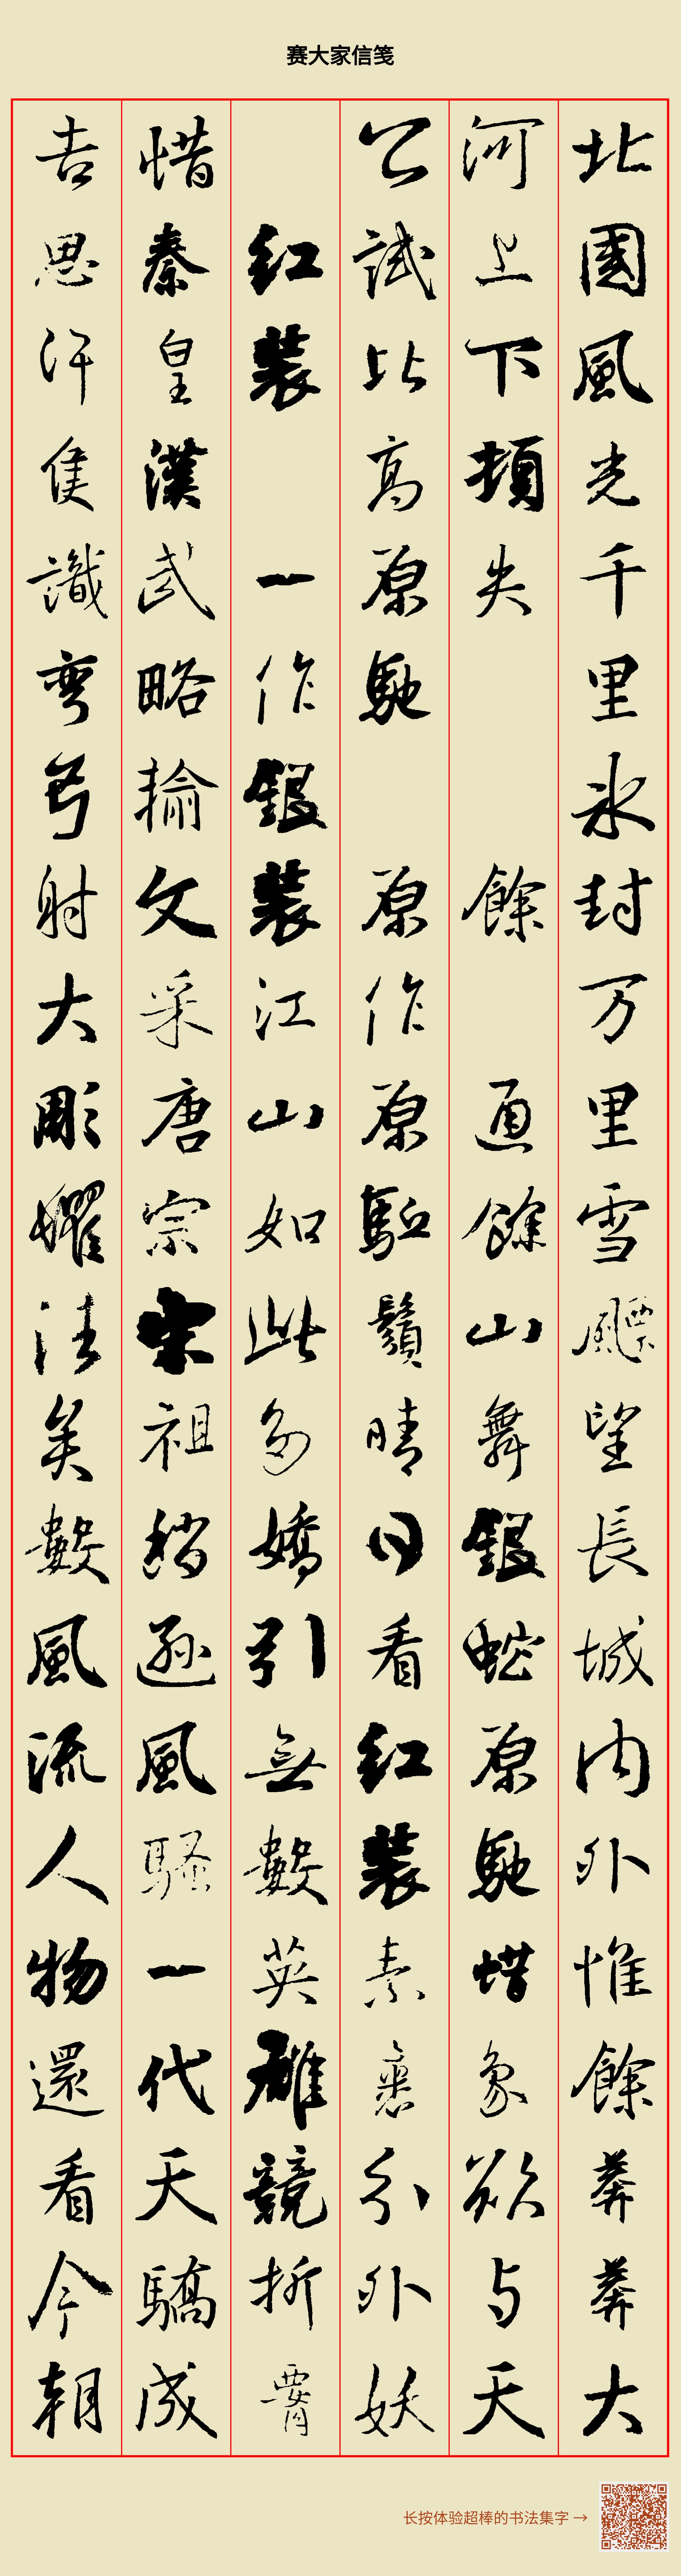 赛大家信笺
北國風光千里氷封万里雪飄望長城内外惟餘莽莽大
河上下頓失 餘 通餘山舞銀蛇原馳蜡象欲与天
公試比高原馳 原作原駈鬚晴日看紅装素裹分外妖
紅装 一作銀装江山如此多嬌引無數英雄競折腰
惜秦皇漢武略輸文采唐宗宋祖稍遜風騷一代天驕成
吉思汗隻識彎弓射大彫往矣數風流人物還看今朝
长按体验超棒的书法集字→